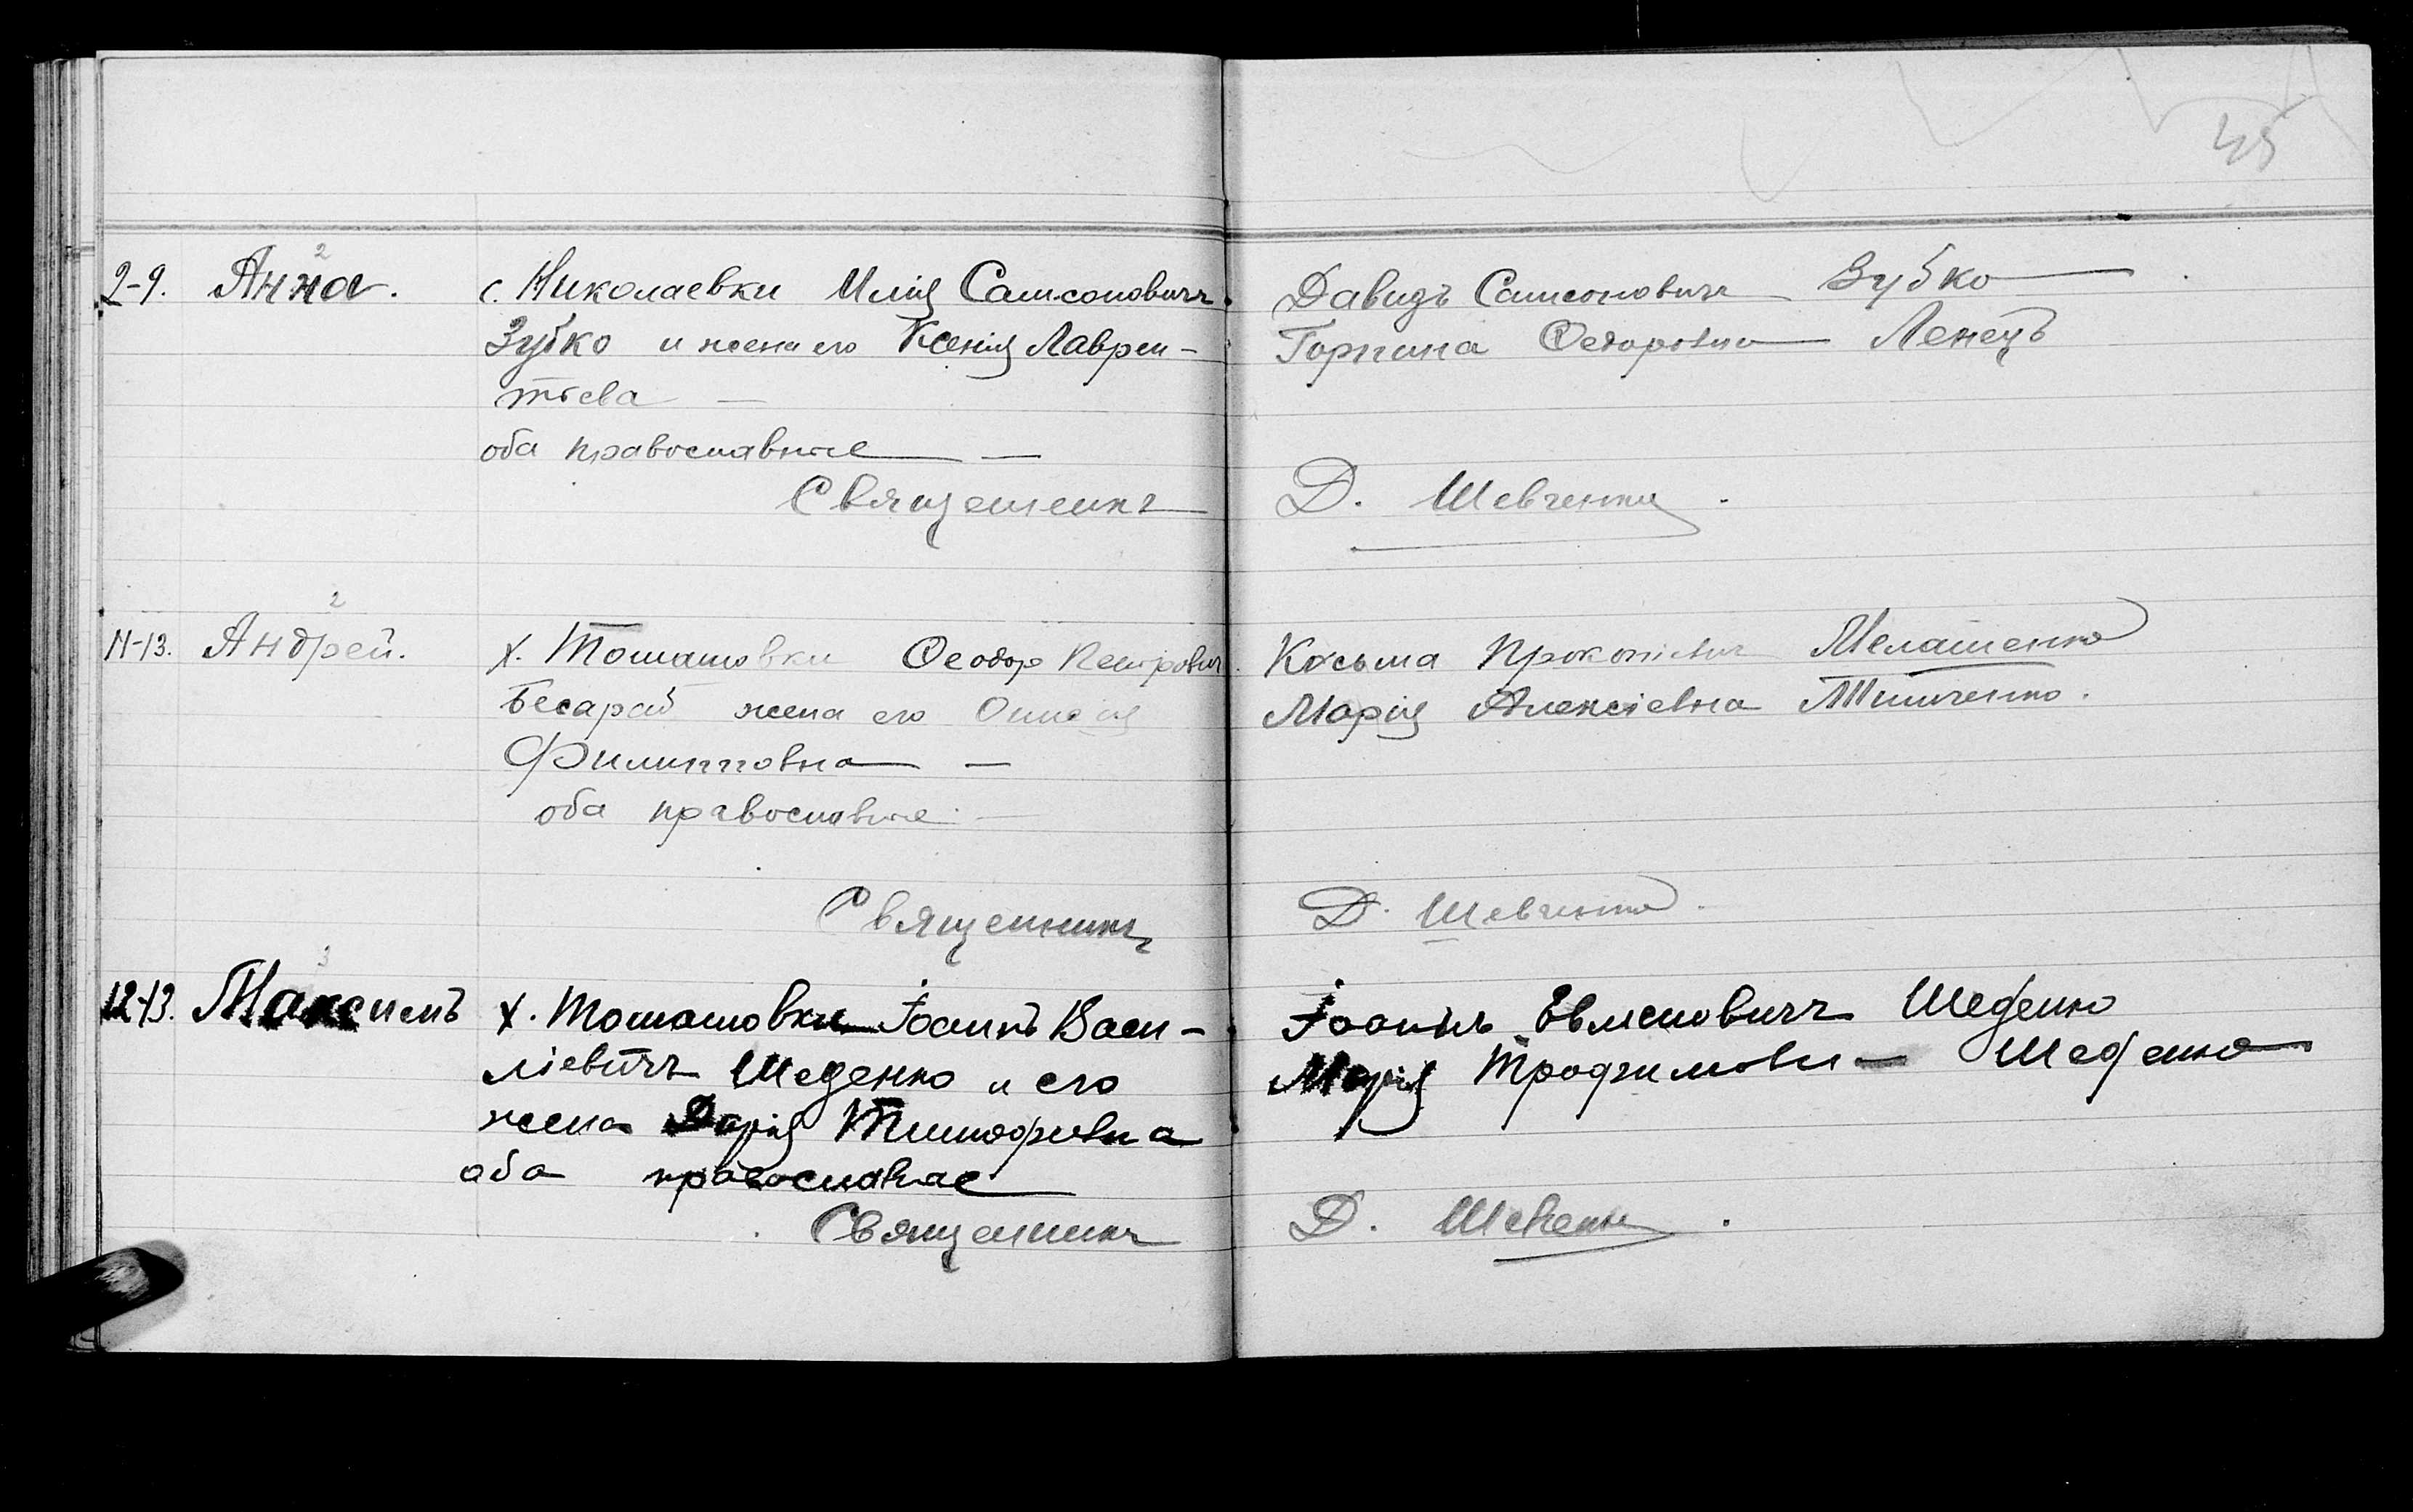 45
2
2-9. Анна. с. Николаевки Илія Самсоновичъ
Зубко и жена его Ксенія Лаврен-
тьева —
оба православные —
Священникъ
Давидъ Самсоновичъ Зубко
Горпина Федоровна Ленецъ
Д. Шевченко.
2
11-13. Андрей. х. Томашовки Феодор Петрович
Бесараб жена его
Филипповна —
оба православные —
Священникъ
Косьма Прокопіевич Мелашенко
Марія Алексіевна Тимченко.
Д. Шевченко.
3
12-13. Максимъ х. Томашовки Іоаннъ Васи-
ліевичъ Шеденко и его
жена Дарія Тимофревна
оба православные
Священникъ
Іоаннъ Шеденко
Марія Трофимовна — Шеденко
Д. Шевченко.